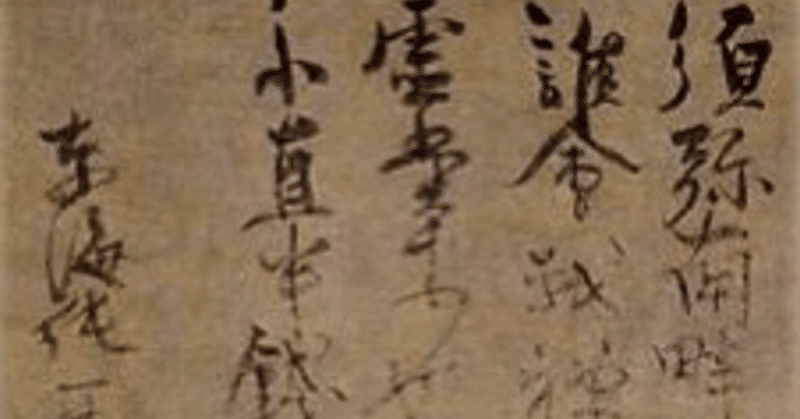 須弥南畔
誰會我禅
虚堂来也
不直半銭
東海純一